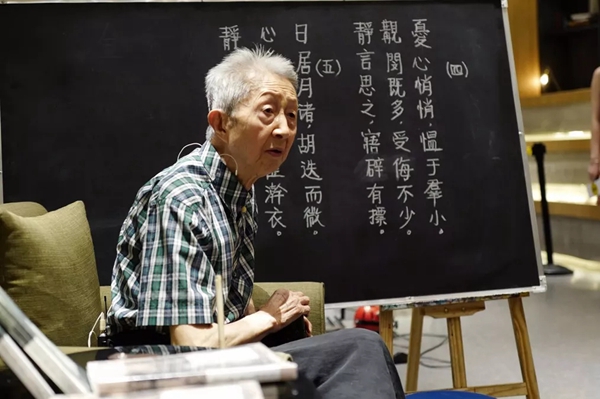 (四)
憂心悄悄,慍于羣小,
覯閔既多,受侮不少。
靜言思之,寤辟有摽。
(五)
日居月諸,胡迭而微。
心 澣衣。
靜